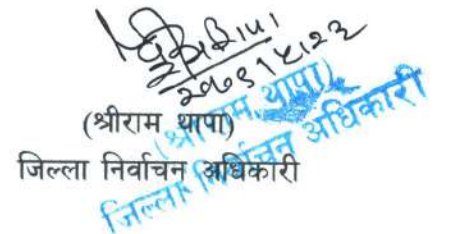 २०७९।५।२३
(श्रीराम थापा)
जिल्ला निर्वाचन अधिकारी
(श्रीराम थापा)
जिल्ला निर्वाचन अधिकारी